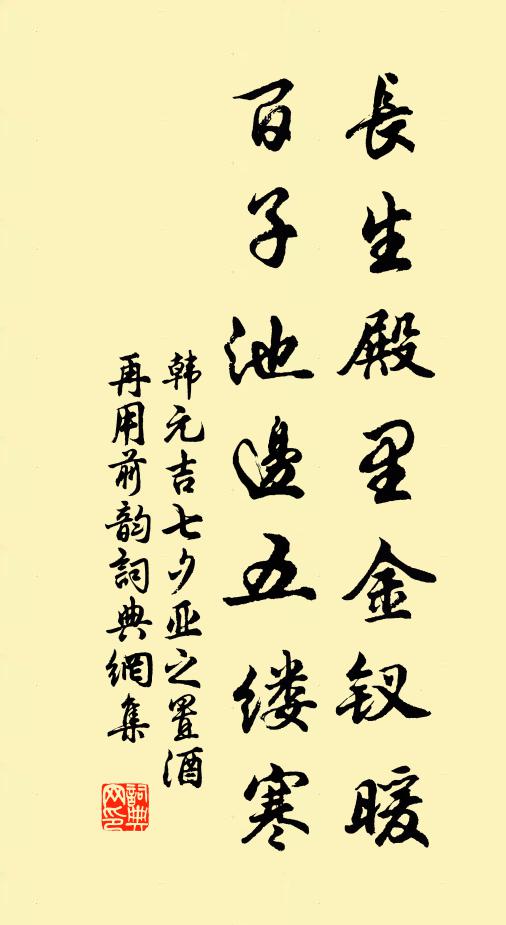 長生殿里金钗暖
百子池邊五缕寒
韩元吉七夕亚之置酒
再用前韵詞典網集
詞典
网印